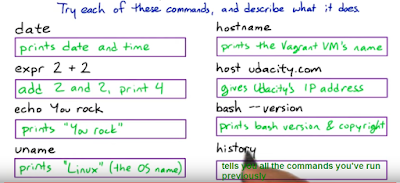 Try each of these commands, and describe what it does.
date
prints date and time
expr 2 + 2
add 2 and 2, print 4
echo You rock
prints "You rock"
uname
prints "Linux" (the OS name)
hostname
prints the Vagrant VM's name
host udacity.com
gives Udacity's IP address
bash --version
prints bash version & copyright
history
tells you all the commands you've run
previously